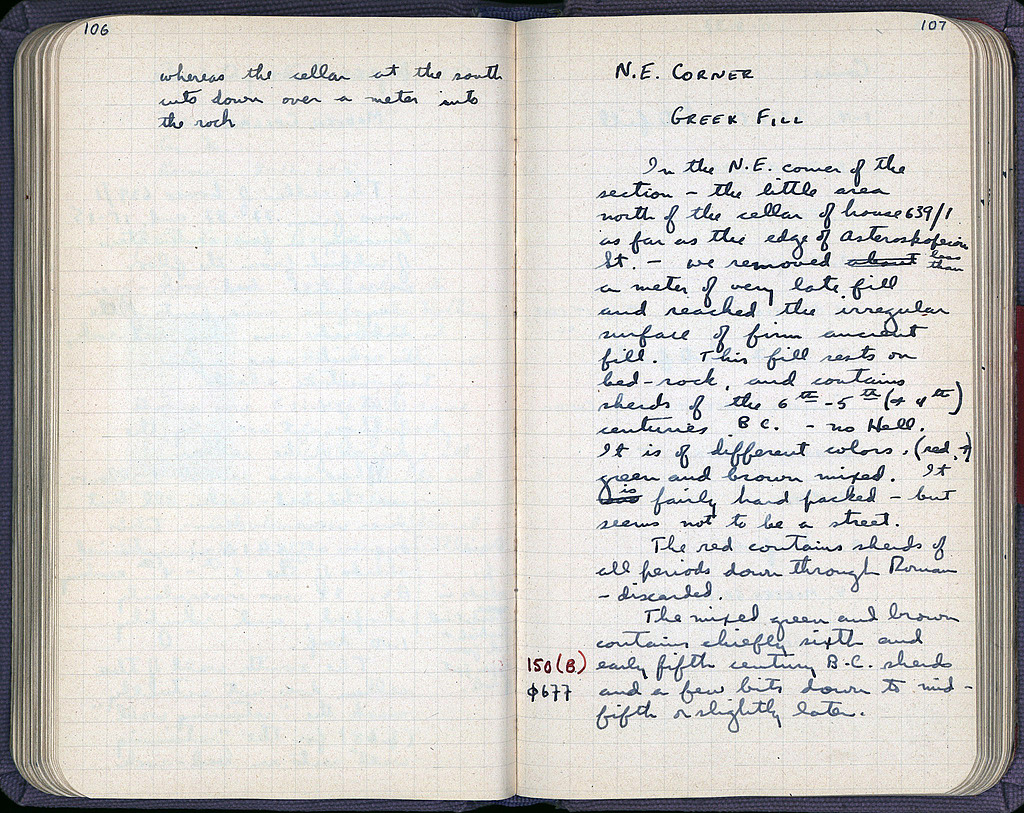 106
whereas the cellar at the south
cuts down over a meter into
the rock
107
N.E. CORNER
GREEK FILL
In the N.E. corner of the
section – the little area
north of the cellar of house 639/1
as far as the edge of Asteroskopeion
St. – we removed about less than
a meter of very late fill
and reached the irregular
surface of firm ancient
fill. This fill rests on
bed-rock, and contains
sherds of the 6th – 5th (+ 4th)
centuries B C. – no Hell.
It is of different colors. (red, +)
green and brown mixed. It
is fairly hard packed – but
seems not to be a street.
The red contains sherds of
all periods down through Roman
– discarded.
The mixed green and brown
contains chiefly sixth and
150 (B) early fifth century B.C. sherds
φ677 and a few bits down to mid-
fifth or slightly later.